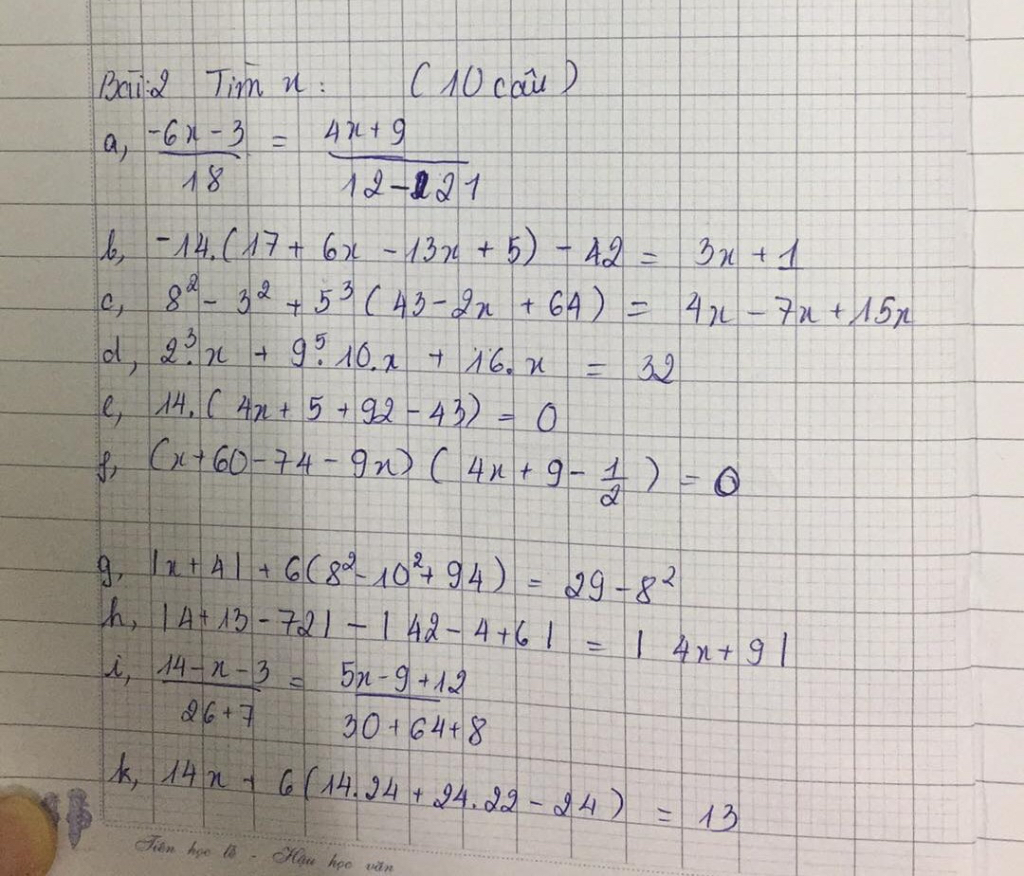 Bài:2 Tìm x: (10 câu)
a, \frac{-6x-3}{18} = \frac{4x+9}{12-221}
b, -14.(17 + 6x - 13x + 5) - 42 = 3x + 1
c, 8² - 3² + 5³ (43 - 2x + 64) = 4x - 7x + 15x
d, 2³.x + 9⁵.10.x + 16.x = 32
e, 14.(4x + 5 + 92 - 43) = 0
f, (x+60-74-9x) (4x + 9 - \frac{1}{2}) = 0
g, |x+4| + 6(8²-10²+94) = 29-8²
h, |4+13-72| - |42-4+6| = |4x+9|
i, \frac{14-x-3}{26+7} = \frac{5x-9+12}{30+64+8}
k, 14x + 6(14.24 + 24.22 - 24) = 13
Tiên học lễ - Hậu học văn